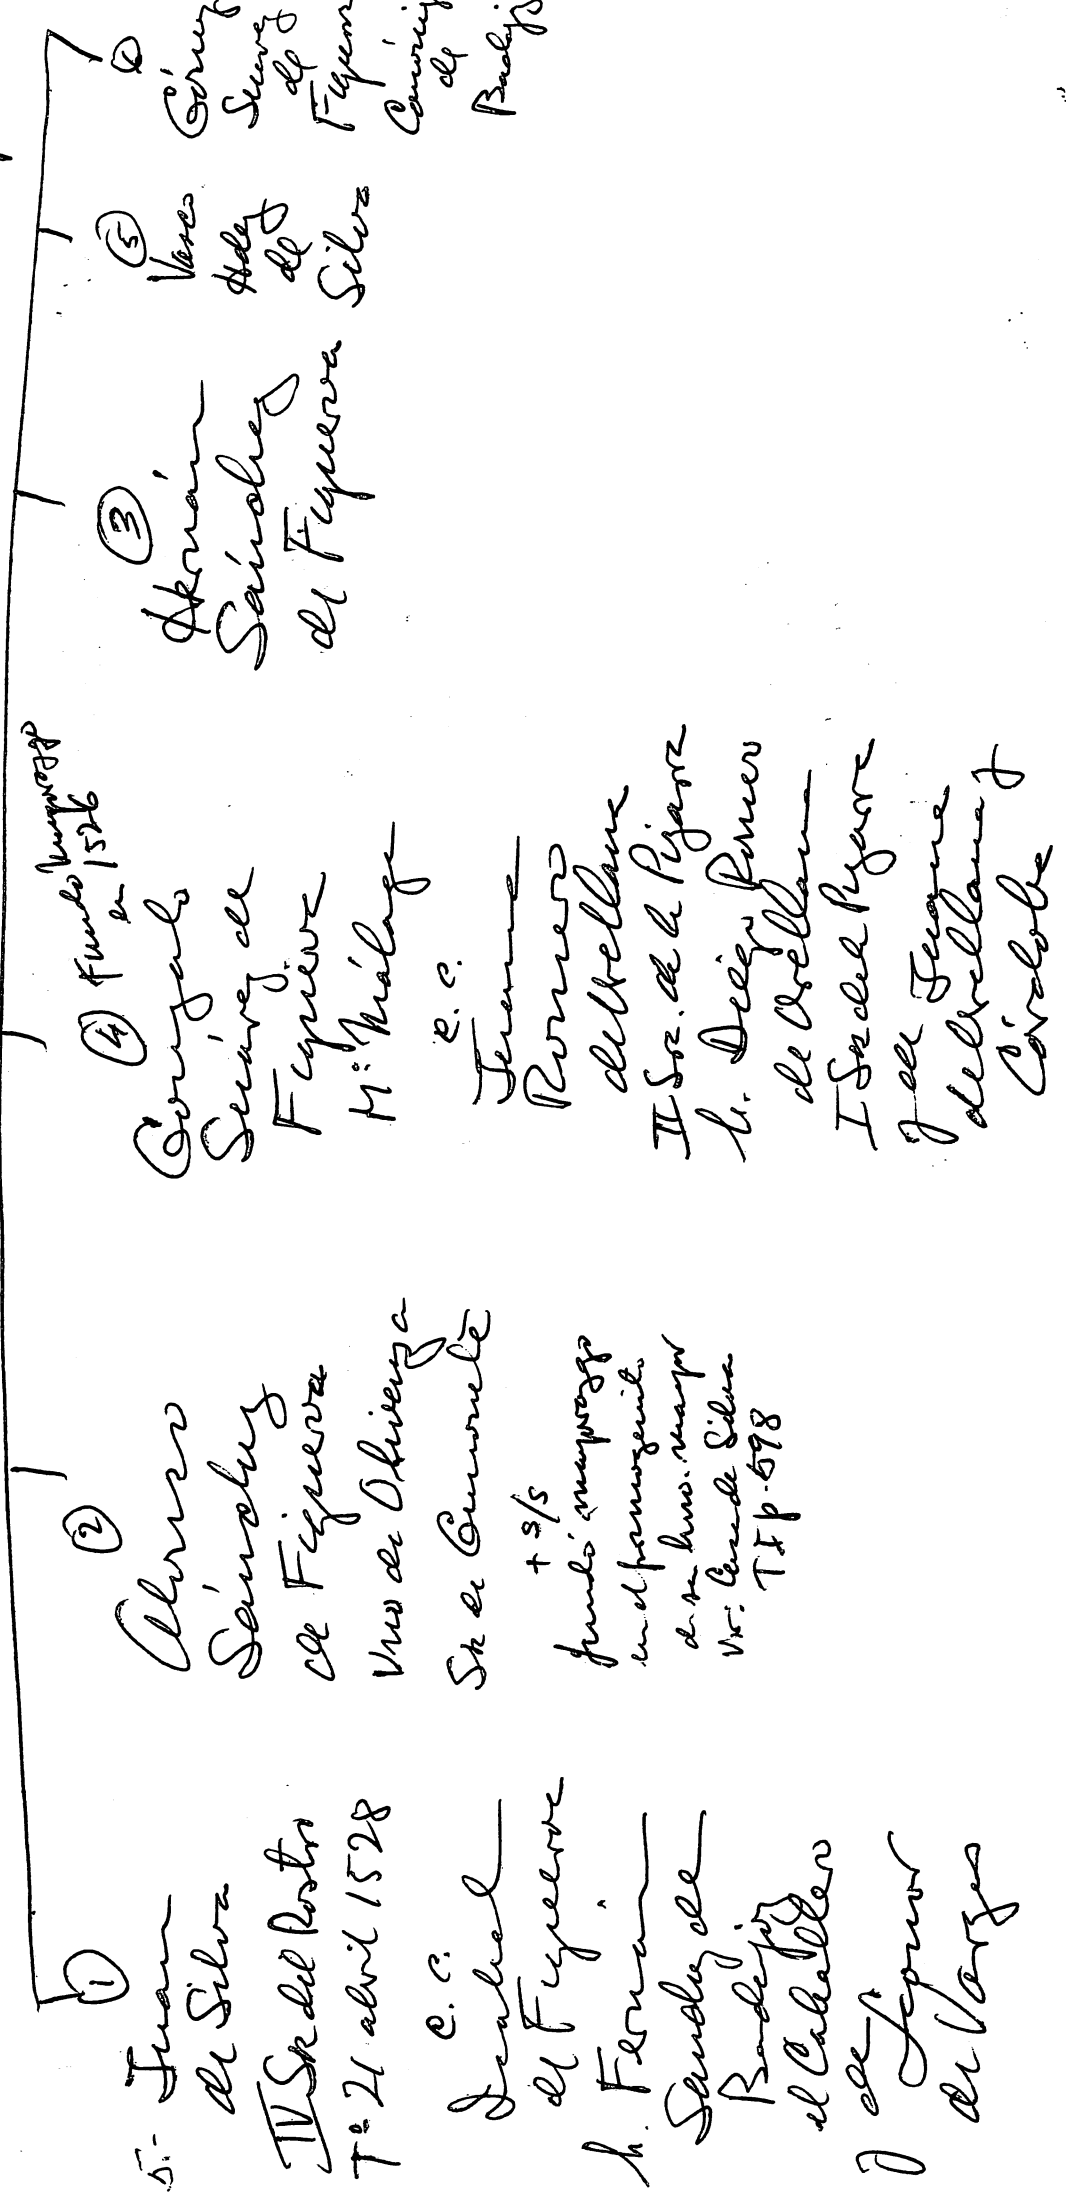 5.-
①
Juan
de Silva
IV Sr. del Rostro
Tº 21 abril 1528
c. c.
Isabel
de Figueroa
h. Fernán
Sánchez de
Badajoz
el Caballero
y de Leonor
de Vargas
②
Alonso
Sánchez
de Figueroa
Vno de Olivenza
Sr de
+ s/s
fundó mayorazgo
en el primogénito
de su hno. mayor
Vr: Casa de Silva
T I p. 598
④ Fundó mayorazgo
en 1526
Gonzalo
Suárez de
Figueroa
Mº Málaga
c. c.
Juana
Romero
de Orellana
II Sra. de la Pizarra
h. Diego Romero
de Orellana
I Sr de la Pizarra
y de Juana
de Orellana y
Córdoba
③
Hernán
Sánchez
de Figueroa
⑤
Vasco
Hdez
de
Silva
Gómez
Suarez
de
Figueroa
Canónigo
de
Badajoz